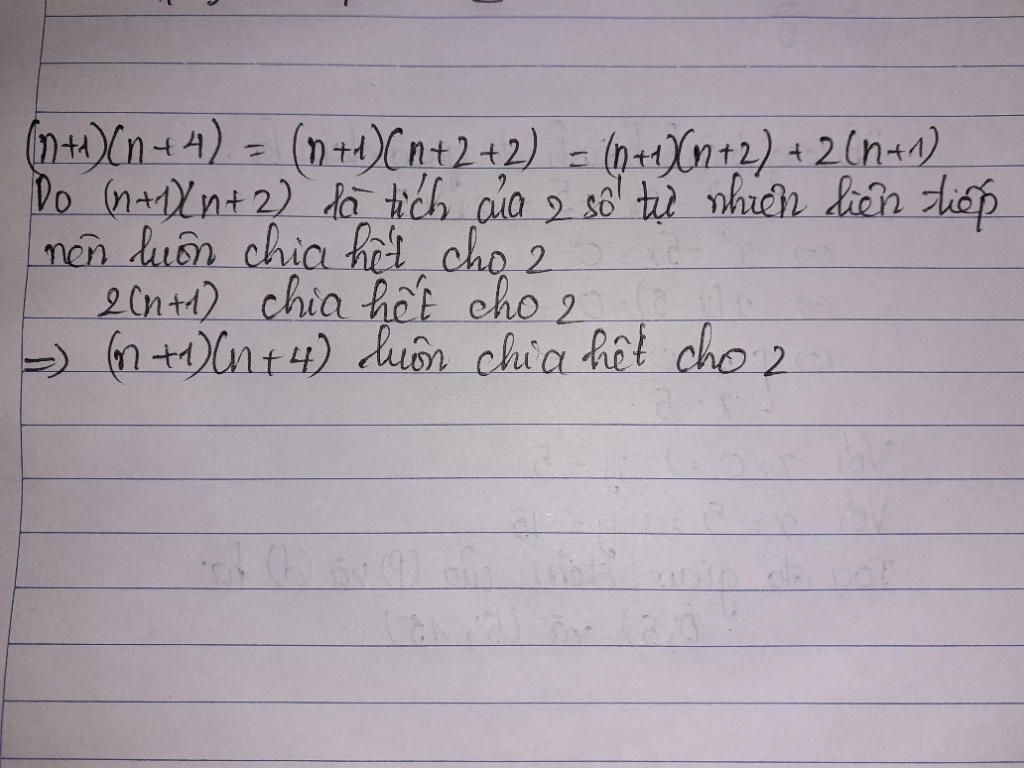 (n+1)(n+4) = (n+1)(n+2+2) = (n+1)(n+2) + 2(n+1)
Do (n+1)(n+2) là tích của 2 số tự nhiên liên tiếp
nên luôn chia hết cho 2
2(n+1) chia hết cho 2
=> (n+1)(n+4) luôn chia hết cho 2